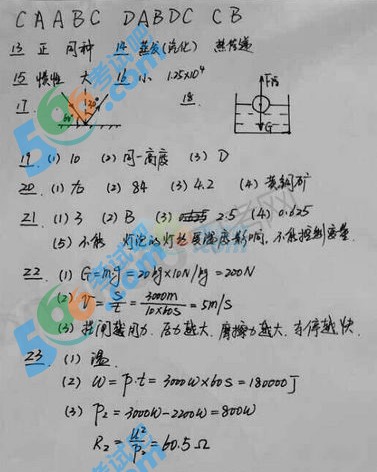 CAABC DABDC CB
13 正 同种 14 蒸发(汽化) 热传递
15 惯性 大 16 小 1.25×10⁴
17. 60° 30° 18. F浮 G
19. (1) 10 (2) 同一高度 (3) D
20. (1) 右 (2) 84 (3) 4.2 (4) 黄铜矿
21. (1) 3 (2) B (3) 2.5 (4) 0.625
(5) 不能 灯泡的灯丝受温度影响, 不能控制变量.
22. (1) G=mg=20kg×10N/kg=200N
(2) v=s/t=3000m/10×60s=5m/s
(3) 捏闸越用力, 压力越大, 摩擦力越大, 车停越快.
23. (1) 温
(2) W=P·t=3000W×60s=180000J
(3) P₂=3000W-2200W=800W
R₂=U²/P₂=60.5Ω
566考试吧
566考试吧